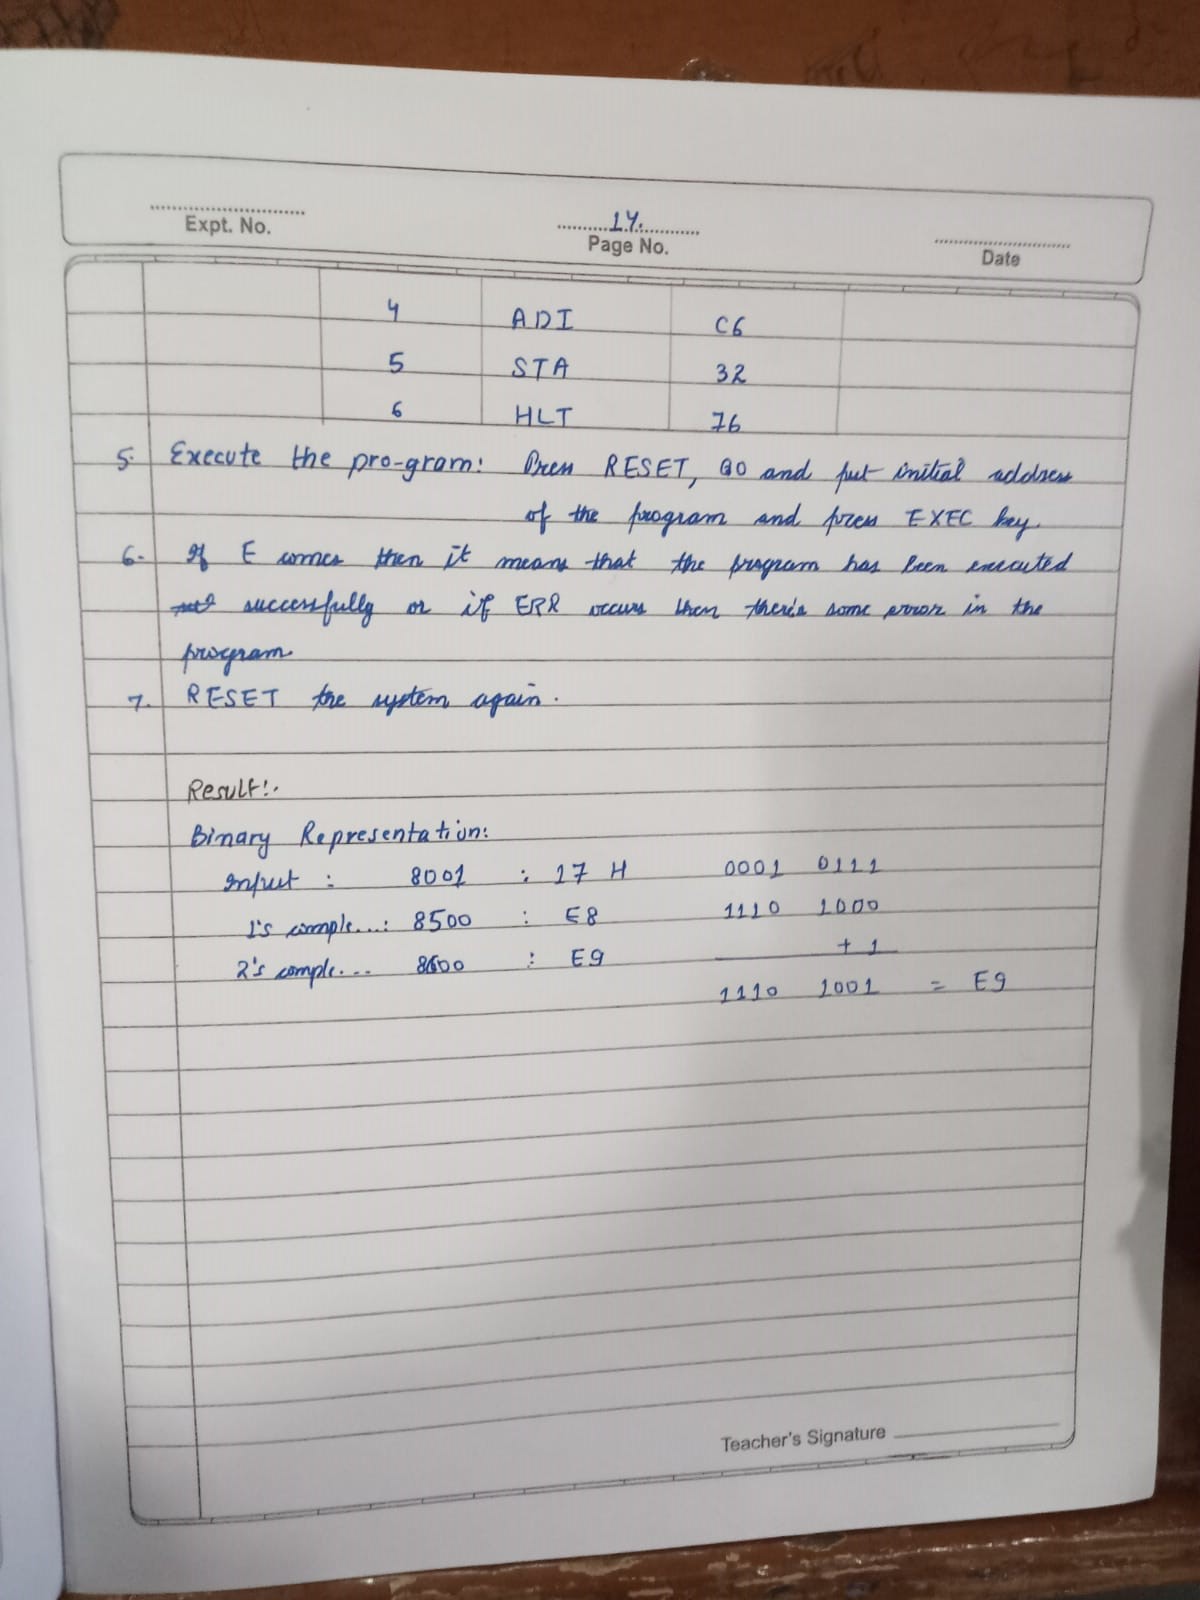 Expt. No.
14.
Page No.
Date
4 ADI C6
5 STA 32
6 HLT 76
5. Execute the pro-gram: Press RESET, GO and put initial address
of the program and press EXEC key.
6. If E comes then it means that the program has been executed
successfully or if ERR occurs then there's some error in the
program.
7. RESET the system again.
Result:-
Binary Representation:
Input : 8001 : 17 H 0001 0111
1's comple...: 8500 : E8 1110 1000
+ 1
2's comple... 8600 : E9
1110 1001 = E9
Teacher's Signature